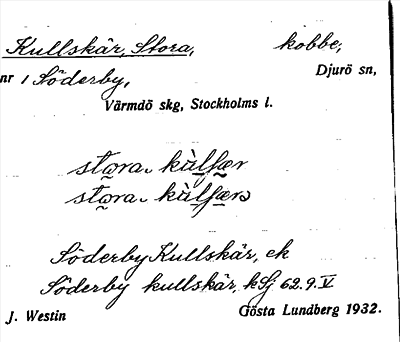 Kullskär, Stora, kobbe,
nr 1 Söderby, Djurö sn,
Värmdö skg, Stockholms l.
Söderby Kullskär, ek
Söderby kullskär, kSj 62.9.V
J. Westin Gösta Lundberg 1932.